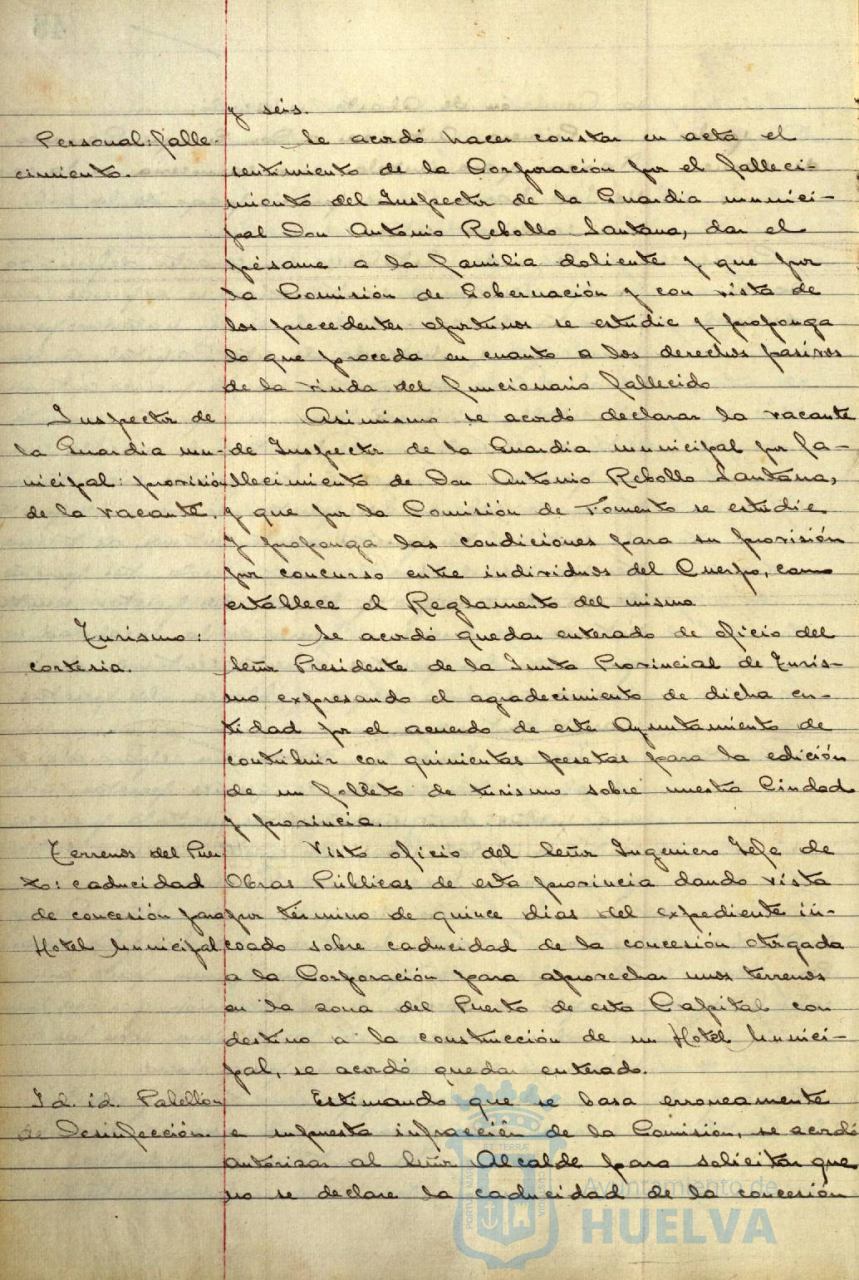 y seis.
Personal: falle-
cimiento.
Se acordó hacer constar en acta el
sentimiento de la Corporación por el falleci-
miento del Inspector de la Guardia munici-
pal Don Antonio Rebollo Santana, dar el
pésame a la familia doliente y que por
la Comisión de Gobernación y con vista de
los precedentes oportunos se estudie y proponga
lo que proceda en cuanto a los derechos pasivos
de la viuda del funcionario fallecido
Inspector de
la Guardia mu-
nicipal: provisión
de la vacante.
Asimismo se acordó declarar la vacante
de Inspector de la Guardia municipal por fa-
llecimiento de Don Antonio Rebollo Santana,
y que por la Comisión de Fomento se estudie
y proponga las condiciones para su provisión
por concurso entre individuos del Cuerpo, como
establece el Reglamento del mismo
Turismo:
cortesia.
Se acordó quedar enterado de oficio del
Señor Presidente de la Junta Provincial de Turis-
mo expresando el agradecimiento de dicha en-
tidad por el acuerdo de este Ayuntamiento de
contribuir con quinientas pesetas para la edición
de un folleto de turismo sobre nuestra Ciudad
y provincia.
Terrenos del Puer-
to: caducidad
de concesión para
Hotel Municipal
Visto oficio del Señor Ingeniero Jefe de
Obras Públicas de esta provincia dando vista
por término de quince dias del expediente in-
coado sobre caducidad de la concesión otorgada
a la Corporación para aprovechar unos terrenos
en la zona del Puerto de esta Capital con
destino a la construcción de un Hotel Munici-
pal, se acordó quedar enterado.
Id. id. Pabellón
de Desinfección.
Estimando que se basa erroneamente
e supuesta infracción de la Comisión, se acordó
autorizar al Señor Alcalde para solicitar que
no se declare la caducidad de la concesión
Ayuntamiento de
HUELVA